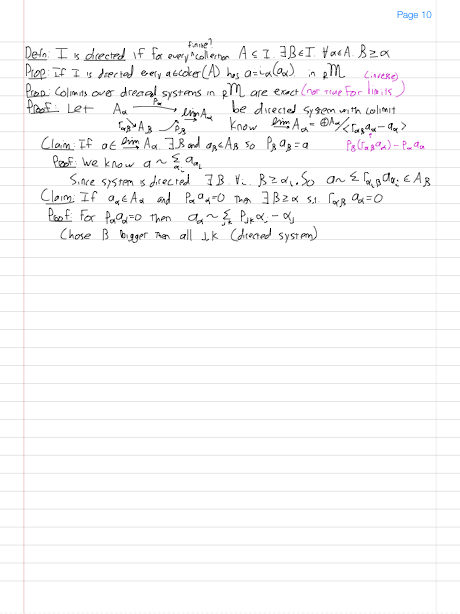 Page 10
finite?
Defn: I is directed if for every ^collection A ≤ I ∃B∈I ∀α∈A B≥α
Prop: If I is directed every a∈coker(A) has a=iα(aα) in RM
(inverse)
Prop: Colimits over directed systems in RM are exact (not true for limits)
Proof: Let Aα →Pα lim Aα be directed system with colimit
rαβ ↘ Aβ ↗Pβ know lim Aα = ⊕Aα/<rαβ aα - aα>
Claim: If a∈ lim Aα ∃β and aβ∈Aβ so Pβ aβ = a
Pβ(rαβ aα) - Pα aα
Proof: we know a ~ Σ aαi
Since system is directed ∃β ∀i β≥αi. So a ~ Σ rαiβ aαi ∈ Aβ
Claim: If aα∈Aα and Pα aα=0 then ∃β≥α s.t. rαβ aα=0
Proof: For Pα aα=0 then aα ~ Σjk Pjk αj - αj
Chose β bigger than all j,k (directed system)